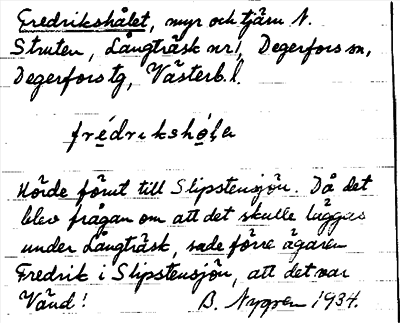 Fredrikshålet, myr och tjärn N.
Struten, Långträsk nr 1, Degerfors sn,
Degerfors tg, Västerb. l.
frédrikshó̜la
Hörde förut till Slipstensjön. Då det
blev frågan om att det skulle läggas
under Långträsk, sade förre ägaren
Fredrik i Slipstensjön, att det var
Vänd! B. Nygren 1934.